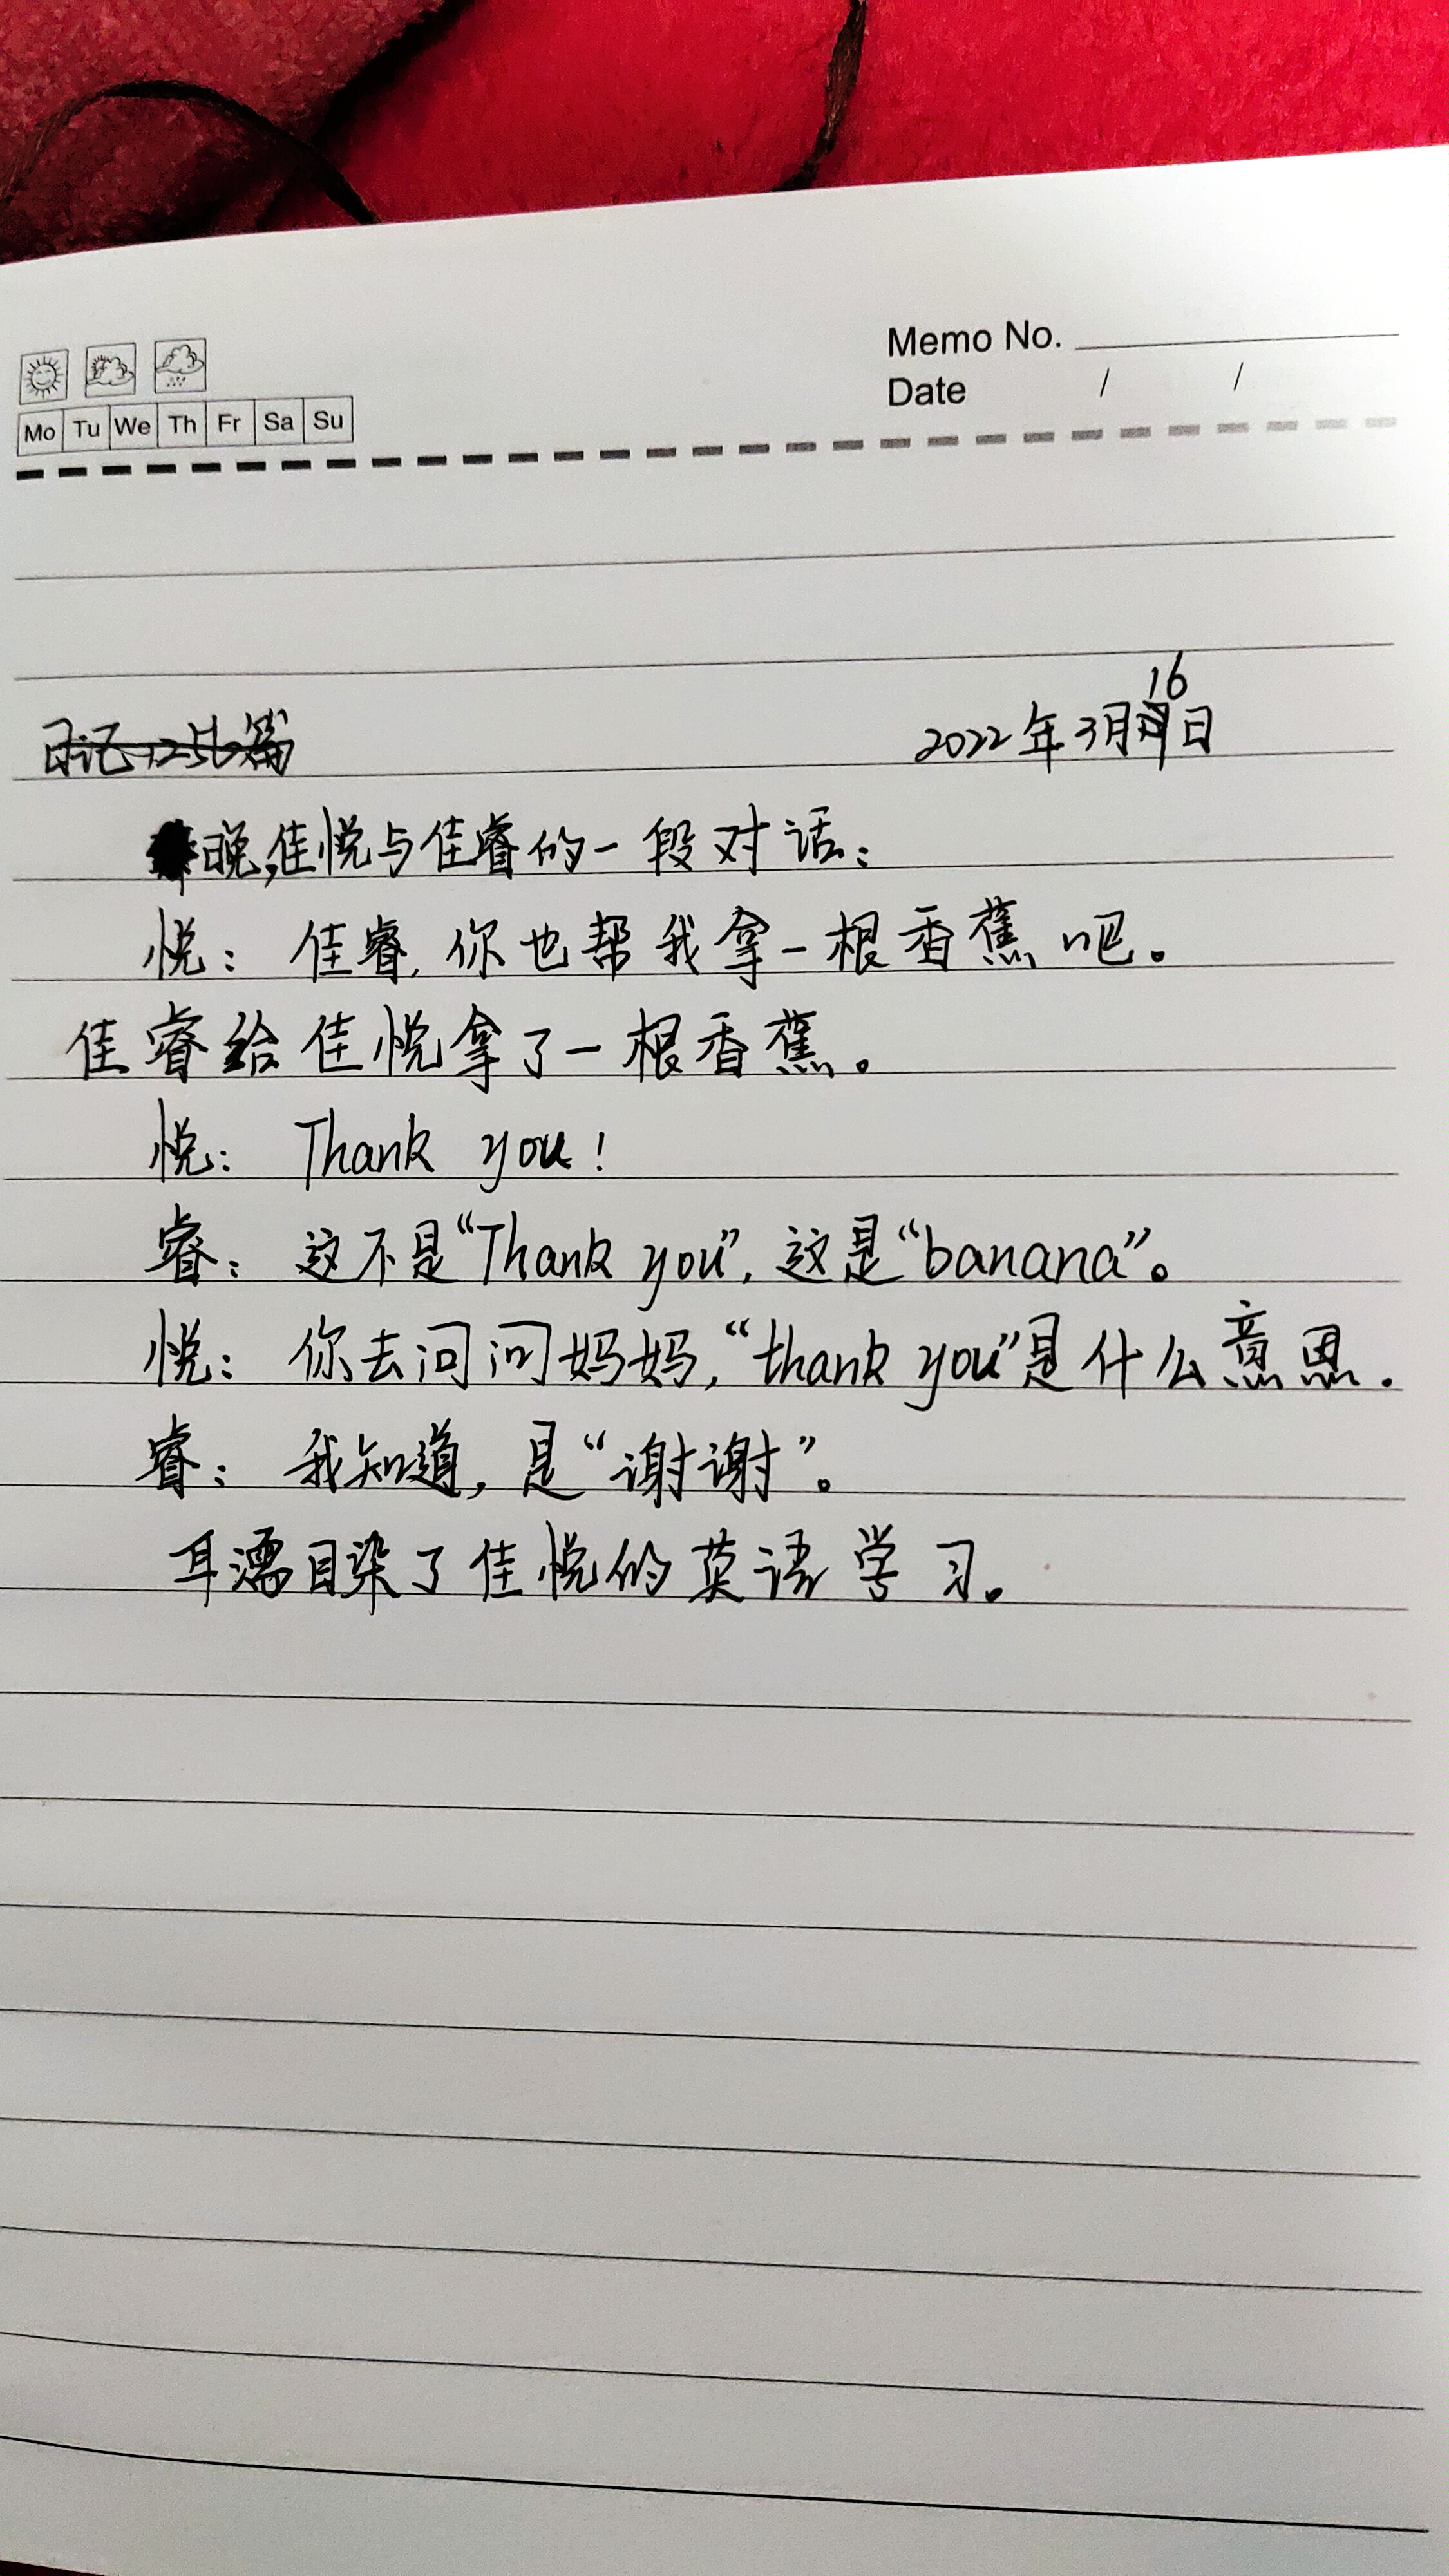 Memo No.
Date / /
Mo Tu We Th Fr Sa Su
2022年3月16日
晚,佳悦与佳睿的一段对话:
悦: 佳睿,你也帮我拿一根香蕉吧。
佳睿给佳悦拿了一根香蕉。
悦: Thank you!
睿: 这不是“Thank you”,这是“banana”。
悦: 你去问问妈妈,“thank you”是什么意思.
睿: 我知道,是“谢谢”。
耳濡目染了佳悦的英语学习。